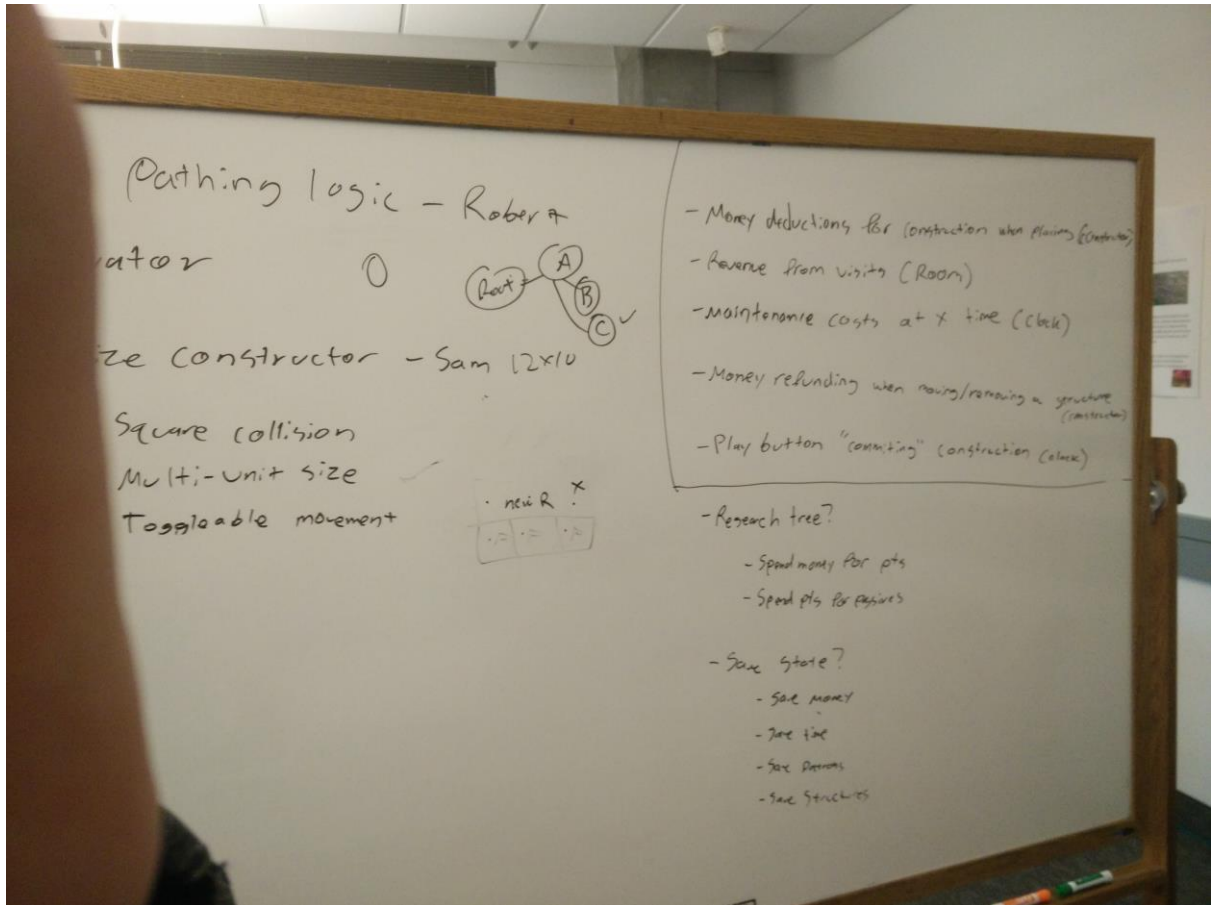 Pathing logic - Robert
ator
O
Root
A
B
C ✓
ze constructor - Sam 12x10
Square collision
Multi-unit size
Toggleable movement
new R X
- Money deductions for construction when placing (constructor)
- Revenue from visits (Room)
- Maintenance costs at X time (clock)
- Money refunding when moving/removing a structure
(constructor)
- Play button "commiting" construction (clock)
- Research tree?
- Spend money for pts
- Spend pts for passives
- Save state?
- Save money
- Save time
- Save patrons
- Save structures